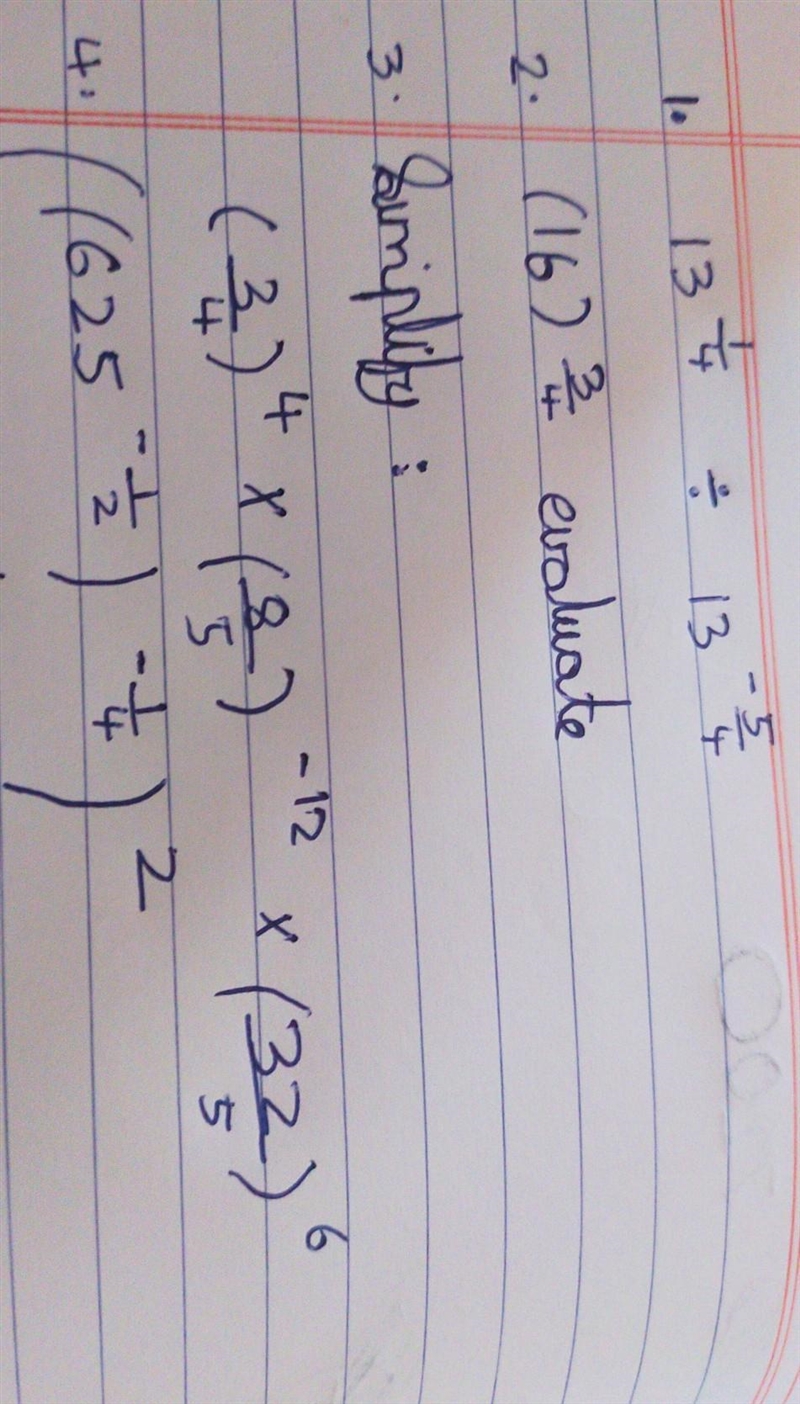 1. 13^1/4 ÷ 13^-5/4
2. (16)^3/4 evaluate
3. Simplify :
(3/4)^4 x (8/5)^-12 x (32/5)^6
4. ((625^-1/2)^-1/4)^2